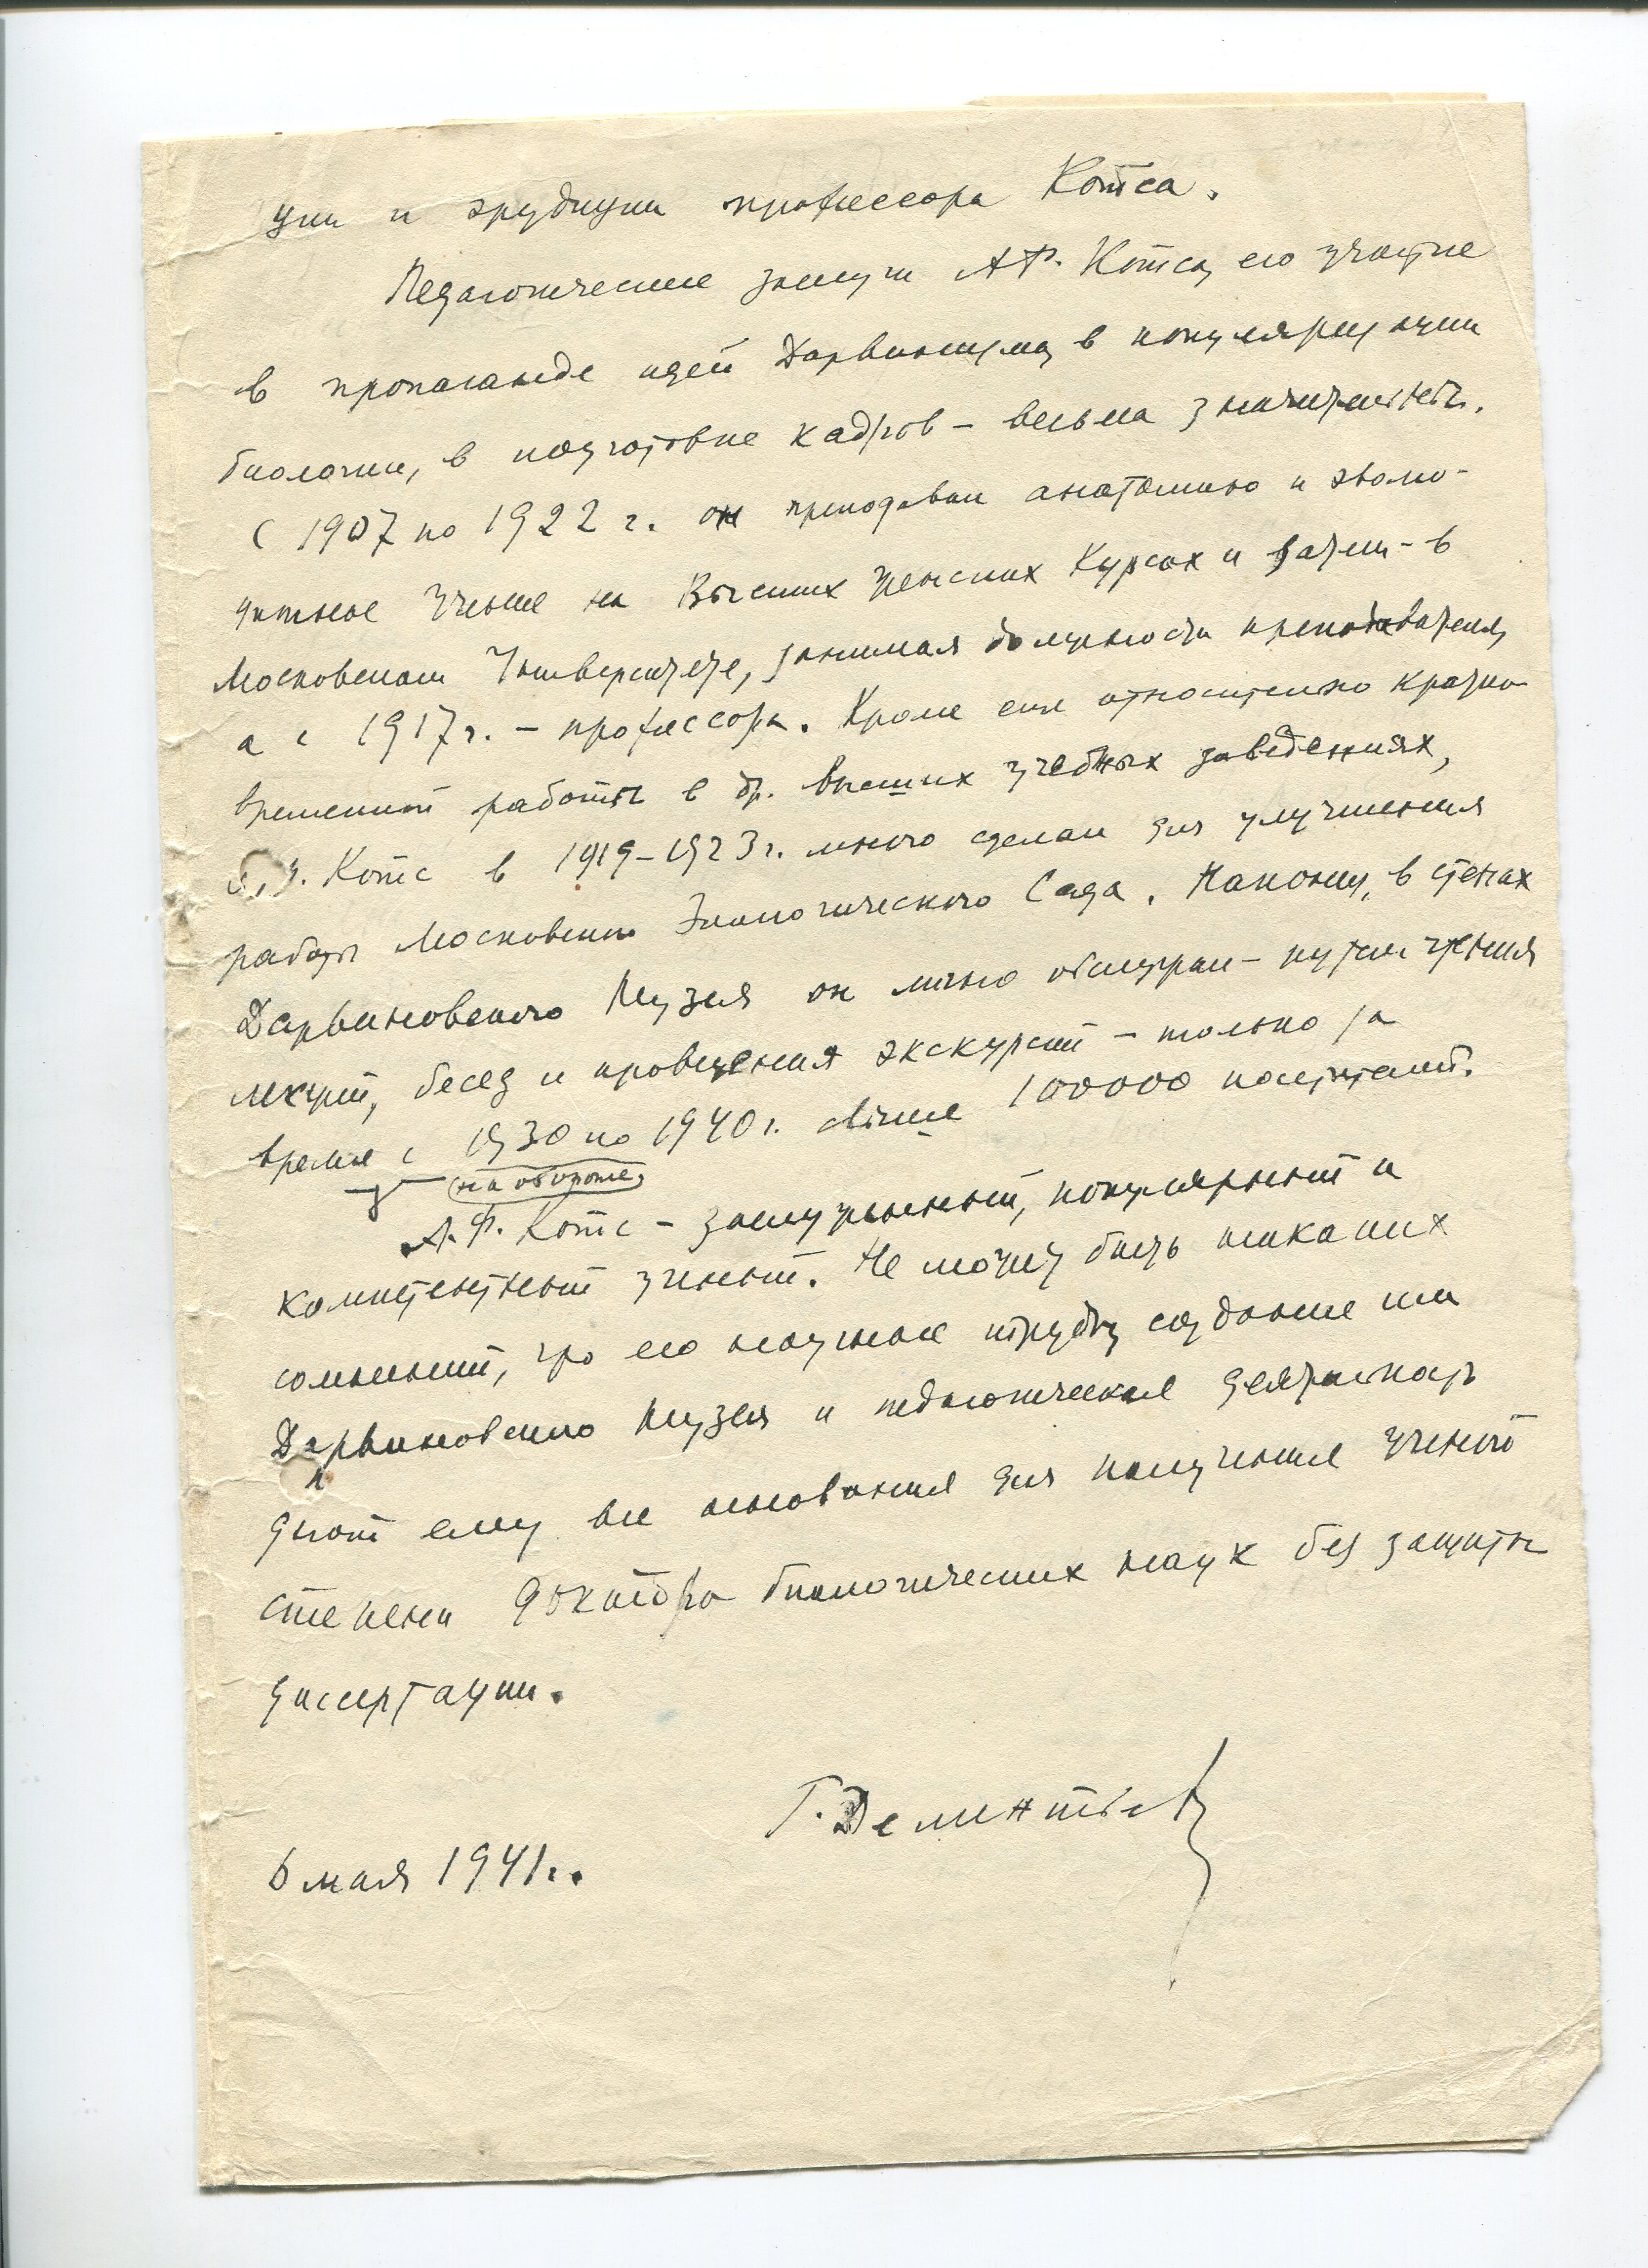 ции и эрудиции профессора Котса.
Педагогические заслуги А.Ф. Котса, его участие
в пропаганде идей Дарвинизма, в популяризации
биологии, в подготовке кадров – весьма значительны.
С 1907 по 1922 г. он преподавал анатомию и эволю-
ционное учение на Высших Женских Курсах и затем – в
Московском Университете, занимая должности преподавателя,
а с 1917 г. – профессора. Кроме того относительно кратко-
временной работы в др. высших учебных заведениях,
Котс в 1919–1923 г. много сделал для улучшения
работы Московского Зоологического Сада. Наконец, в стенах
Дарвиновского Музея он лично обслужил – путем чтения
лекций, бесед и проведения экскурсий – только за
время с 1930 по 1940 г. свыше 100000 посетителей.
(на обороте)
А.Ф. Котс – заслуженный, популярный и
компетентный ученый. Не может быть никаких
сомнений, что его научные труды, создание им
Дарвиновского Музея и педагогическая деятельность
дают ему все основания для получения ученой
степени доктора биологических наук без защиты
диссертации.
Г. Дементьев
6 мая 1941 г.